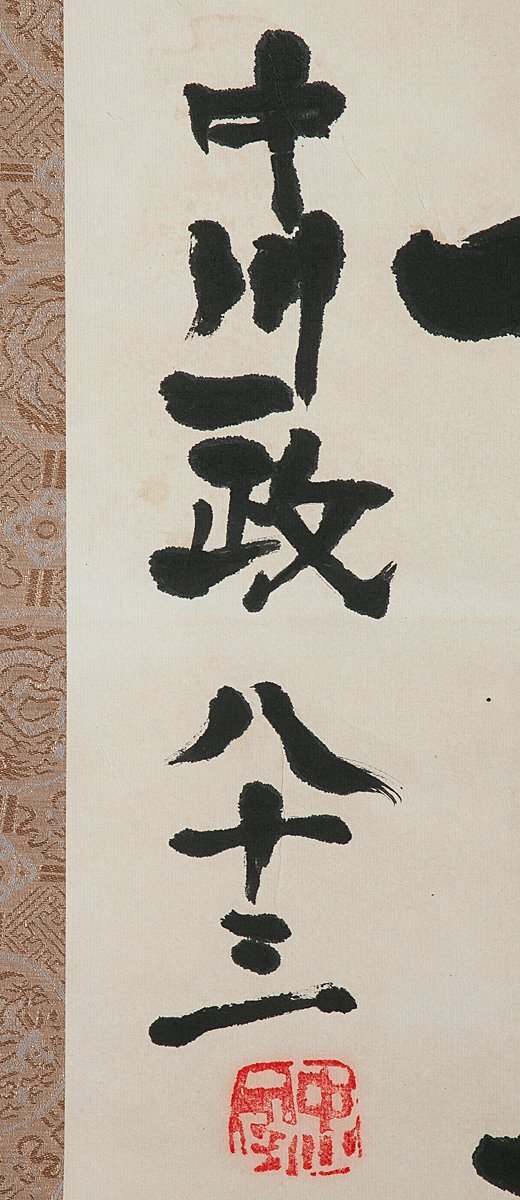 中川一政 八十三